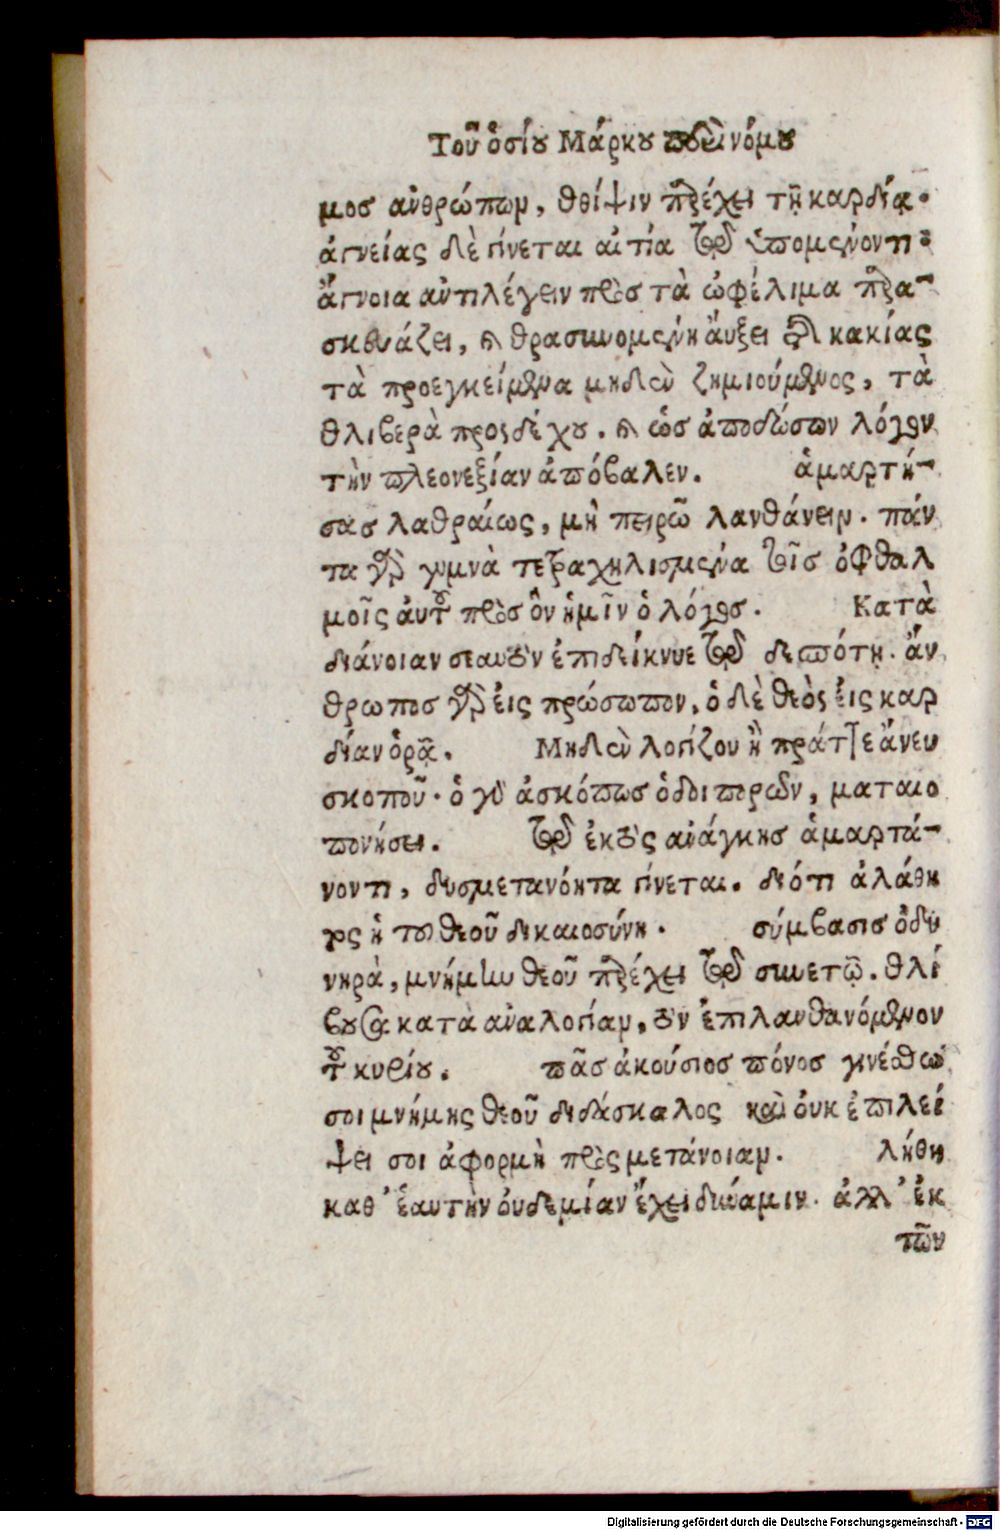 Τοῦ ὁσίου Μάρκου περὶ νόμου
μος ἀνθρώπων, θλίψιν παρέχει τῇ καρδίᾳ.
ἁγνείας δὲ γίνεται αἰτία τῷ ὑπομένοντι:
ἄγνοια ἀντιλέγειν πρὸς τὰ ὠφέλιμα παρα-
σκευάζει, καὶ θρασυνομένη ἄυξει τῆς κακίας
τὰ προεγκείμενα μηδὲν ζημιούμενος, τὰ
θλιβερὰ προςδέχου. καὶ ὡς ἀποδώσων λόγον
τὴν πλεονεξίαν ἀπόβαλεν. ἁμαρτή-
σας λαθραίως, μὴ πειρῶ λανθάνειν. πάν
τα γὰρ γυμνὰ τετραχηλισμένα τοῖς ὀφθαλ
μοῖς ἀυτοῦ πρὸς ὃν ἡμῖν ὁ λόγος. Κατὰ
διάνοιαν σεαυτὸν ἐπιδείκνυε τῷ δεσπότῃ. ἄν
θρωπος γὰρ ἐις πρόσωπον, ὁ δὲ θεὸς ἐις καρ
δίαν ὁρᾷ. Μηδὲν λογίζου ἢ πράττε ἄνευ
σκοποῦ. ὁ γὰρ ἀσκόπως ὁδοιπορῶν, ματαιο
πονήσει. τῷ ἐκτὸς ἀνάγκης ἁμαρτά-
νοντι, δυσμετανόητα γίνεται. διότι ἀλάθη
τος ἡ τοῦ θεοῦ δικαιοσύνη. σύμβασις ὀδυ
νηρὰ, μνήμην θεοῦ παρέχει τῷ συνετῷ. θλί
βουσα κατὰ ἀναλογίαν, τὸν ἐπιλανθανόμενον
τοῦ κυρίου. πᾶς ἀκούσιος πόνος γινέσθω
σοι μνήμης θεοῦ διδάσκαλος καὶ ὀυκ ἐπιλεί
ψει σοι ἀφορμὴ πρὸς μετάνοιαν. λήθη
καθ’ ἑαυτὴν ὀυδεμίαν ἔχει δύναμιν. ἀλλ’ ἐκ
τῶν
Digitalisierung gefördert durch die Deutsche Forschungsgemeinschaft - DFG